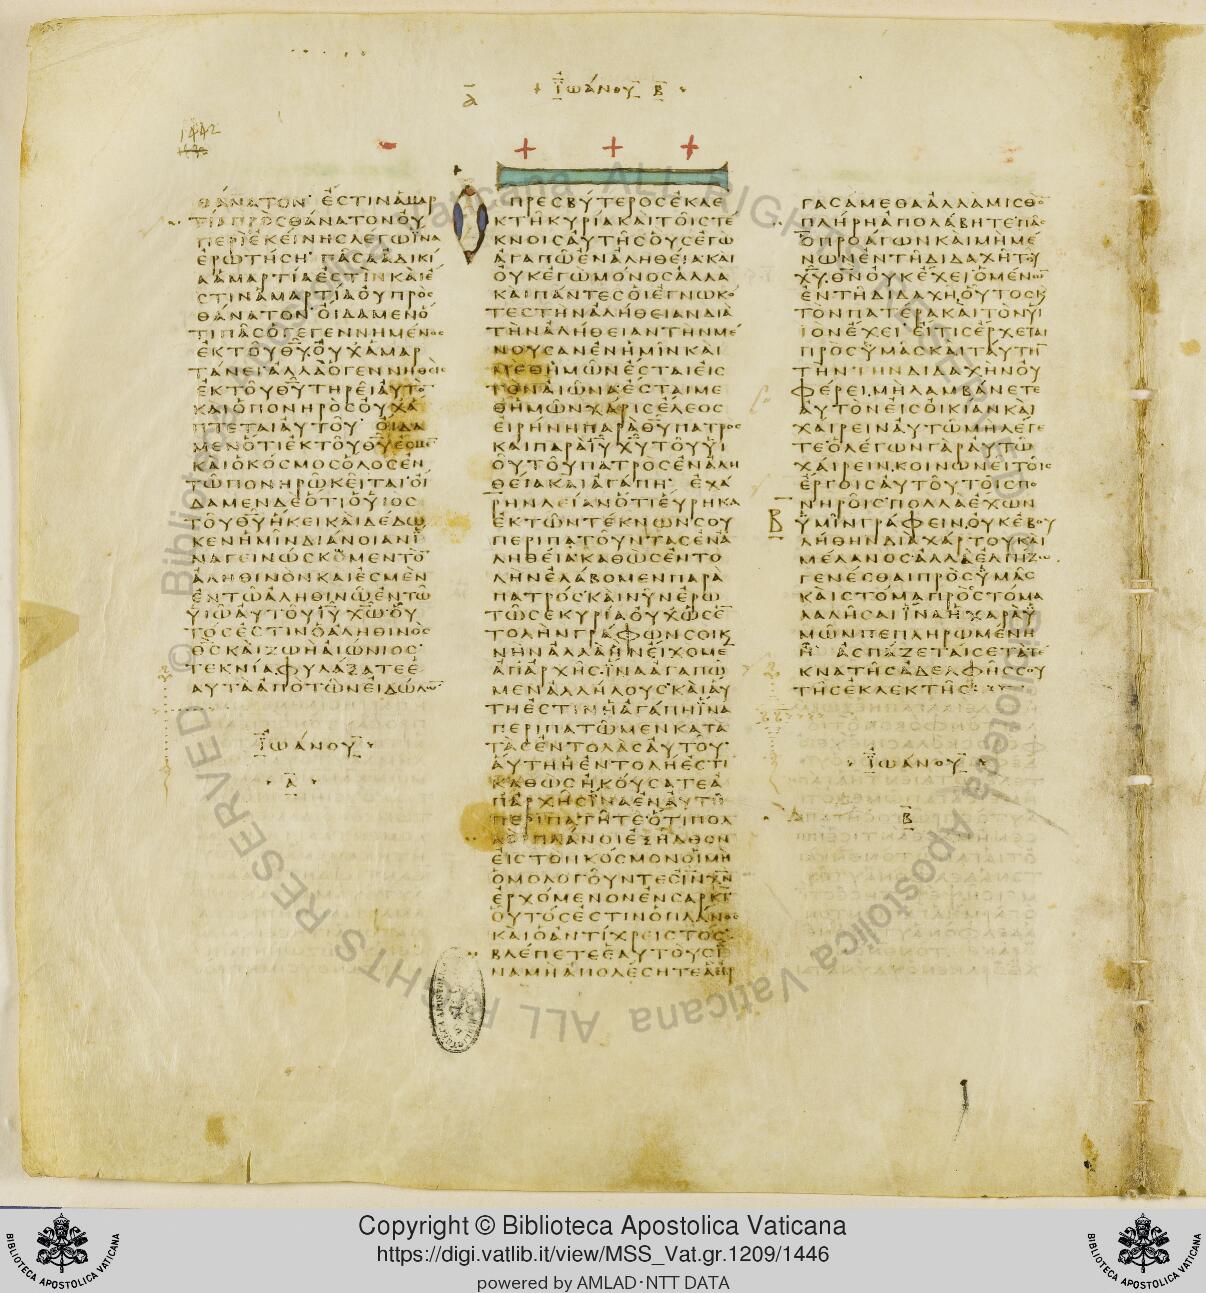 + ΙΩΑΝΟΥ Β
Α
1442
ΘΑΝΑΤΟΝ· ΕΣΤΙΝΑΜΑΡ
ΤΙΑΠΡΟΣΘΑΝΑΤΟΝΟΥ
ΠΕΡΙΕΚΕΙΝΗΣΛΕΓΩΪΝΑ
ΕΡΩΤΗΣΗ· ΠΑΣΑΑΔΙΚΙ
ΑΑΜΑΡΤΙΑΕΣΤΙΝΚΑΙΕ
ΣΤΙΝΑΜΑΡΤΙΑΟΥΠΡΟΣ
ΘΑΝΑΤΟΝ· ΟΙΔΑΜΕΝΟ
ΤΙΠΑΣΟΓΕΓΕΝΝΗΜΕΝΟΣ
ΕΚΤΟΥΘ̅Υ̅ΟΥΧΑΜΑΡ
ΤΑΝΕΙΑΛΛΑΟΓΕΝΝΗΘΕΙΣ
ΕΚΤΟΥΘ̅Υ̅ΤΗΡΕΙΑΥΤΟ̅
ΚΑΙΟΠΟΝΗΡΟΣΟΥΧΑ
ΠΤΕΤΑΙΑΥΤΟΥ· ΟΙΔΑ
ΜΕΝΟΤΙΕΚΤΟΥΘ̅Υ̅ΕΣΜΕ̅
ΚΑΙΟΚΟΣΜΟΣΟΛΟΣΕΝ
ΤΩΠΟΝΗΡΩΚΕΙΤΑΙ·ΟΙ
ΔΑΜΕΝΔΕΟΤΙΟΥΪΟΣ
ΤΟΥΘ̅Υ̅ΗΚΕΙΚΑΙΔΕΔΩ
ΚΕΝΗΜΙΝΔΙΑΝΟΙΑΝΪ
ΝΑΓΕΙΝΩΣΚΟΜΕΝΤΟ̅
ΑΛΗΘΙΝΟΝΚΑΙΕΣΜΕΝ
ΕΝΤΩΑΛΗΘΙΝΩΕΝΤΩ
ΥΙΩΑΥΤΟΥΙ̅Υ̅Χ̅Ω̅·ΟΥ
ΤΟΣΕΣΤΙΝΟΑΛΗΘΙΝΟΣ
Θ̅Σ̅ΚΑΙΖΩΗΑΙΩΝΙΟΣ·
ΤΕΚΝΙΑΦΥΛΑΞΑΤΕΕ
ΑΥΤΑΑΠΟΤΩΝΕΙΔΩΛΩ̅
ΙΩΑΝΟΥ
Α
Ο ΠΡΕΣΒΥΤΕΡΟΣΕΚΛΕ
ΚΤΗΚΥΡΙΑΚΑΙΤΟΙΣΤΕ
ΚΝΟΙΣΑΥΤΗΣΟΥΣΕΓΩ
ΑΓΑΠΩΕΝΑΛΗΘΕΙΑΚΑΙ
ΟΥΚΕΓΩΜΟΝΟΣΑΛΛΑ
ΚΑΙΠΑΝΤΕΣΟΙΕΓΝΩΚΟ
ΤΕΣΤΗΝΑΛΗΘΕΙΑΝΔΙΑ
ΤΗΝΑΛΗΘΕΙΑΝΤΗΝΜΕ
ΝΟΥΣΑΝΕΝΗΜΙΝΚΑΙ
ΜΕΘΗΜΩΝΕΣΤΑΙΕΙΣ
ΤΟΝΑΙΩΝΑΕΣΤΑΙΜΕ
ΘΗΜΩΝΧΑΡΙΣΕΛΕΟΣ
ΕΙΡΗΝΗΠΑΡΑΘ̅Υ̅ΠΑΤΡΟΣ
ΚΑΙΠΑΡΑΙ̅Υ̅Χ̅Υ̅ΤΟΥΥΪ
ΟΥΤΟΥΠΑΤΡΟΣΕΝΑΛΗ
ΘΕΙΑΚΑΙΑΓΑΠΗ· ΕΧΑ
ΡΗΝΛΕΙΑΝΟΤΙΕΥΡΗΚΑ
ΕΚΤΩΝΤΕΚΝΩΝΣΟΥ
ΠΕΡΙΠΑΤΟΥΝΤΑΣΕΝΑ
ΛΗΘΕΙΑΚΑΘΩΣΕΝΤΟ
ΛΗΝΕΛΑΒΟΜΕΝΠΑΡΑ
ΠΑΤΡΟΣΚΑΙΝΥΝΕΡΩ
ΤΩΣΕΚΥΡΙΑΟΥΧΩΣΕ̅
ΤΟΛΗΝΓΡΑΦΩΝΣΟΙΚ
ΝΗΝΑΛΛΑΗΝΕΙΧΟΜΕ̅
ΑΠΑΡΧΗΣ·ΪΝΑΑΓΑΠΩ
ΜΕΝΑΛΛΗΛΟΥΣΚΑΙΑΥ
ΤΗΕΣΤΙΝΗΑΓΑΠΗΪΝΑ
ΠΕΡΙΠΑΤΩΜΕΝΚΑΤΑ
ΤΑΣΕΝΤΟΛΑΣΑΥΤΟΥ·
ΑΥΤΗΗΕΝΤΟΛΗΕΣΤΙ
ΚΑΘΩΣΗΚΟΥΣΑΤΕΑ
ΠΑΡΧΗΣΪΝΑΕΝΑΥΤΗ
ΠΕΡΙΠΑΤΗΤΕ·ΟΤΙΠΟΛ
ΛΟΙΠΛΑΝΟΙΕΞΗΛΘΟΝ
ΕΙΣΤΟΝΚΟΣΜΟΝΟΙΜΗ
ΟΜΟΛΟΓΟΥΝΤΕΣΙ̅Ν̅Χ̅Ν̅
ΕΡΧΟΜΕΝΟΝΕΝΣΑΡΚΙ·
ΟΥΤΟΣΕΣΤΙΝΟΠΛΑΝΟΣ
ΚΑΙΟΑΝΤΙΧΡΕΙΣΤΟΣ·
ΒΛΕΠΕΤΕΕΑΥΤΟΥΣΪ
ΝΑΜΗΑΠΟΛΕΣΗΤΕΑΗΡ
ΓΑΣΑΜΕΘΑΑΛΛΑΜΙΣΘΟ̅
ΠΛΗΡΗΑΠΟΛΑΒΗΤΕ·ΠΑΣ
ΟΠΡΟΑΓΩΝΚΑΙΜΗΜΕ
ΝΩΝΕΝΤΗΔΙΔΑΧΗΤΟΥ
Χ̅Υ̅Θ̅Ν̅ΟΥΚΕΧΕΙΟΜΕΝΩ̅
ΕΝΤΗΔΙΔΑΧΗΟΥΤΟΣΚ
ΤΟΝΠΑΤΕΡΑΚΑΙΤΟΝΥΪ
ΙΟΝΕΧΕΙ·ΕΙΤΙΣΕΡΧΕΤΑΙ
ΠΡΟΣΫΜΑΣΚΑΙΤΑΥΤΗ̅
ΤΗΝΔΙΔΑΧΗΝΟΥ
ΦΕΡΕΙΜΗΛΑΜΒΑΝΕΤΕ
ΑΥΤΟΝΕΙΣΟΙΚΙΑΝΚΑΙ
ΧΑΙΡΕΙΝΑΥΤΩΜΗΛΕΓΕ
ΤΕ·ΟΛΕΓΩΝΓΑΡΑΥΤΩ
ΧΑΙΡΕΙΝΚΟΙΝΩΝΕΙΤΟΙΣ
ΕΡΓΟΙΣΑΥΤΟΥΤΟΙΣΠΟ
ΝΗΡΟΙΣ·ΠΟΛΛΑΕΧΩΝ
Β ΫΜΙΝΓΡΑΦΕΙΝΟΥΚΕΒΟΥ
ΛΗΘΗΝΔΙΑΧΑΡΤΟΥΚΑΙ
ΜΕΛΑΝΟΣ·ΑΛΛΑΕΛΠΙΖΩ
ΓΕΝΕΣΘΑΙΠΡΟΣΫΜΑΣ
ΚΑΙΣΤΟΜΑΠΡΟΣΤΟΜΑ
ΛΑΛΗΣΑΙΪΝΑΗΧΑΡΑΫ
ΜΩΝΠΕΠΛΗΡΩΜΕΝΗ
Η· ΑΣΠΑΖΕΤΑΙΣΕΤΑΤΕ
ΚΝΑΤΗΣΑΔΕΛΦΗΣΣΟΥ
ΤΗΣΕΚΛΕΚΤΗΣ
ΙΩΑΝΟΥ
Β
Copyright © Biblioteca Apostolica Vaticana
https://digi.vatlib.it/view/MSS_Vat.gr.1209/1446
powered by AMLAD·NTT DATA
BIBLIOTECA APOSTOLICA VATICANA
BIBLIOTECA APOSTOLICA VATICANA
Biblioteca Apostolica Vaticana ALL RIGHTS RESERVED ©